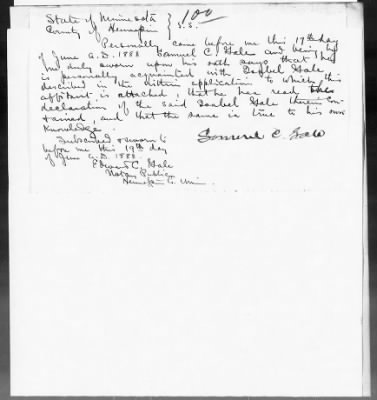 State of Minnesota
100
County of Hennepin } S.S.
Personally came before me this 19th day
of June A.D. 1888 Samuel C. Gale and being by
me duly sworn upon his oath says that he
is personally acquainted with Isabel Gale
described in the written application to which this
affidavit is attached, that he has read the
declaration of the said Isabel Gale therein con-
tained, and that the same is true to his own
knowledge.
Samuel C. Gale
Subscribed & sworn to
before me this 19th day
of June A.D. 1888.
Edward C. Gale
Notary Public
Hennepin Co. Minn.